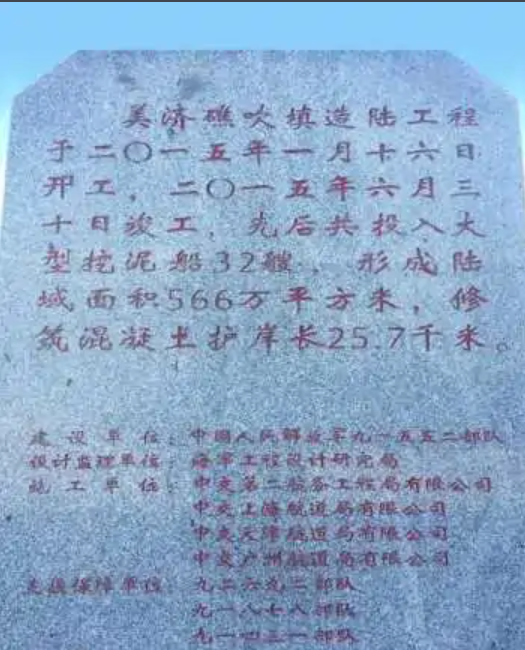 美济礁吹填造陆工程
于二〇一五年一月十六日
开工，二〇一五年六月三
十日竣工，先后共投入大
型挖泥船32艘，形成陆
域面积566万平方米，修
筑混凝土护岸长25.7千米。
建设单位：中国人民解放军九一五五二部队
设计监理单位：海军工程设计研究局
施工单位：中交第二航务工程局有限公司
中交上海航道局有限公司
中交天津航道局有限公司
中交广州航道局有限公司
支援保障单位：九二六九二部队
九一八七八部队
九一四三一部队